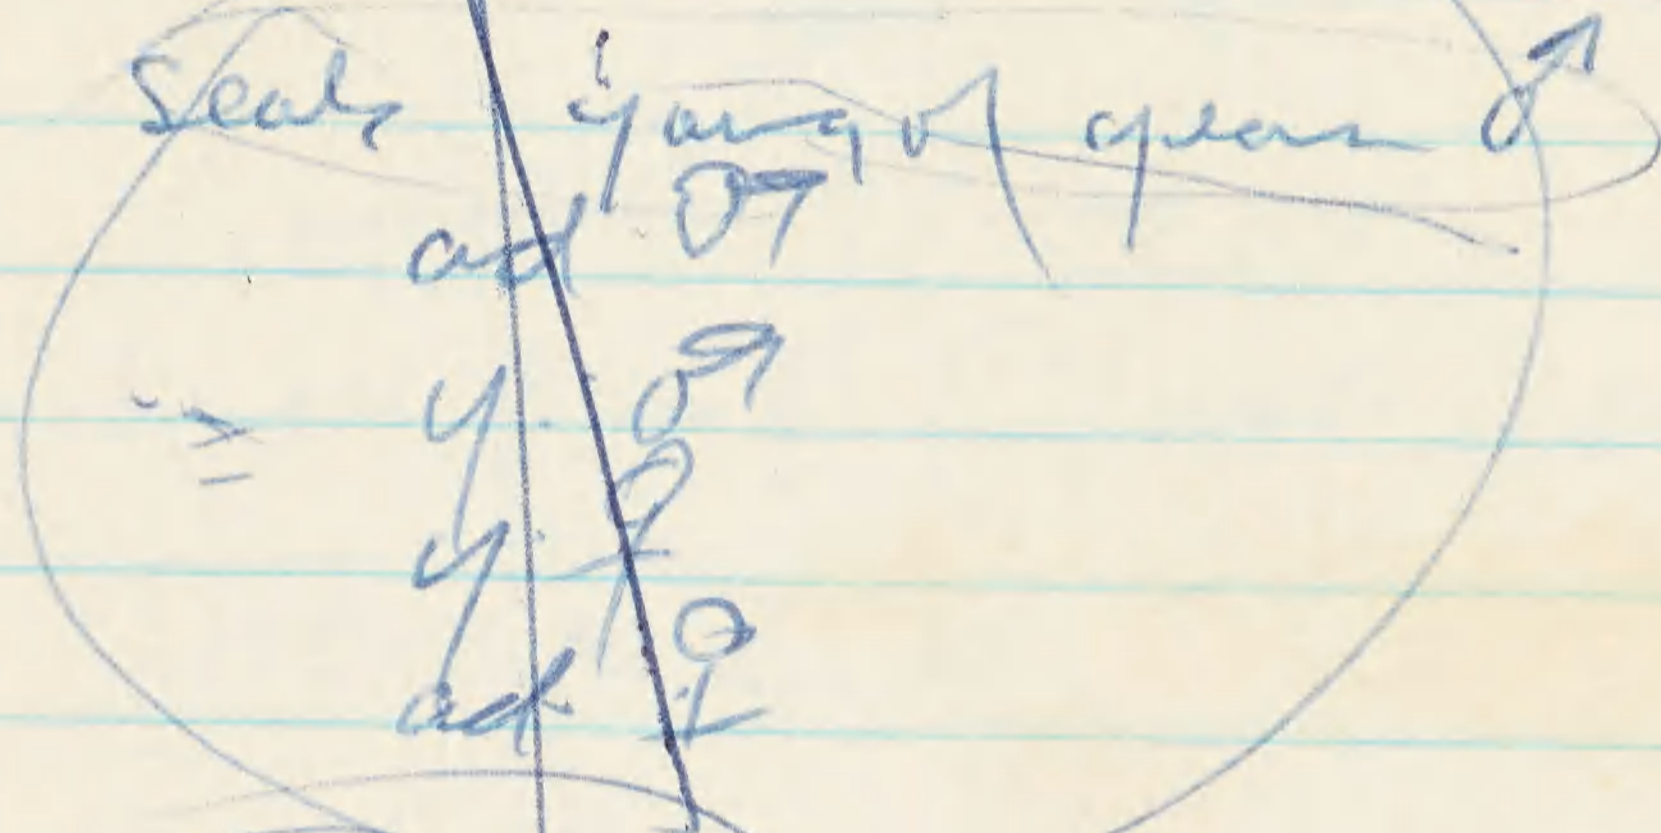 Seals young of ♂
ad ♂
y. ♂
y. ♀
ad ♀